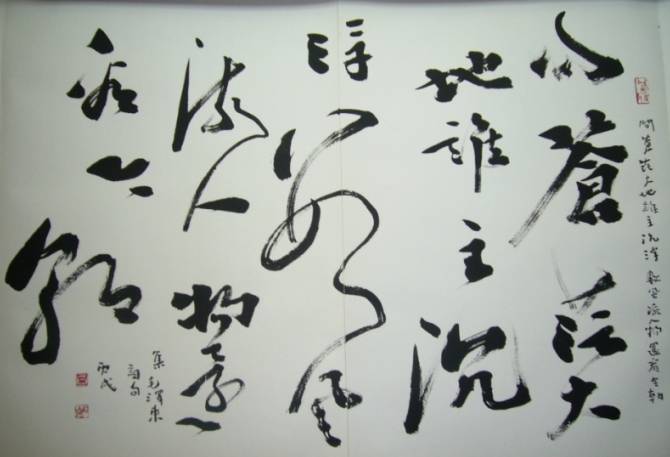 问蒼茫大
地誰主沉
浮数風
流人物還
看今朝
問蒼茫大地誰主沉浮 数風流人物還看今朝
集毛澤東
詩句
丙戌